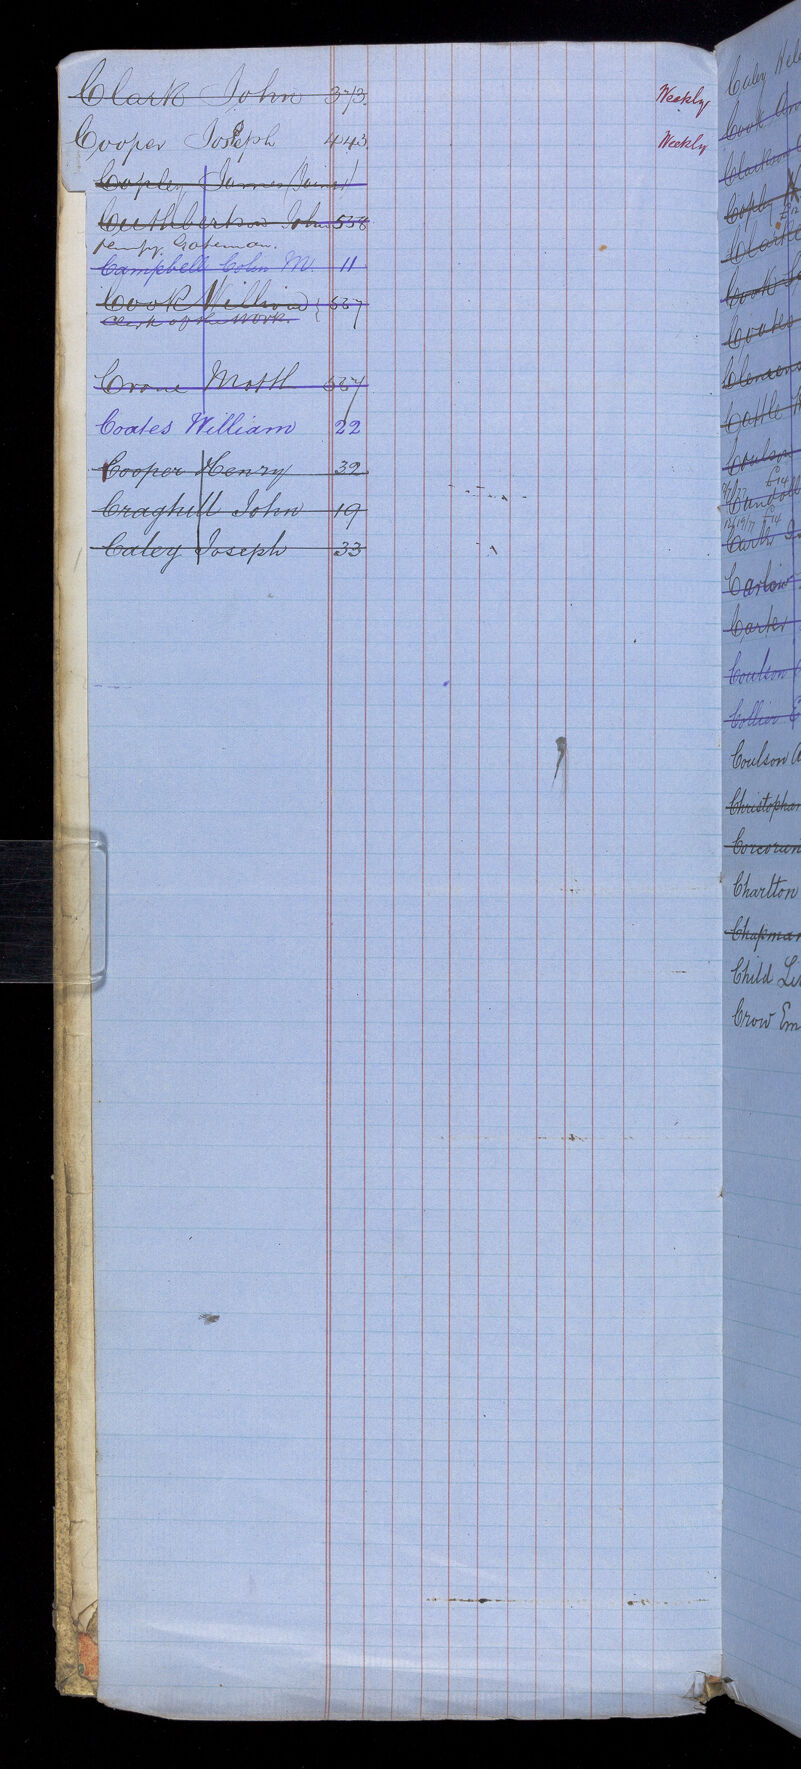 Clark John 373 Weekly
Cooper Joseph 443 Weekly
Copley James 11
Cuthbertson John 538
tempy. Gateman.
Campbell Colin M. 11
Cook William 537
Clerk of the Work.
Crone Matth 537
Coates William 22
Cooper Henry 32
Craghill John 19
Caley Joseph 33
Caley
Cook
Clarkson
Copley
Clark
Cook
Coates
Clemens
Cattle
Coulson
£14
£14
Carlow
Carter
Coulson
Collier
Coulson
Christopher
Corcoran
Charlton
Chapman
Child
Crow Em